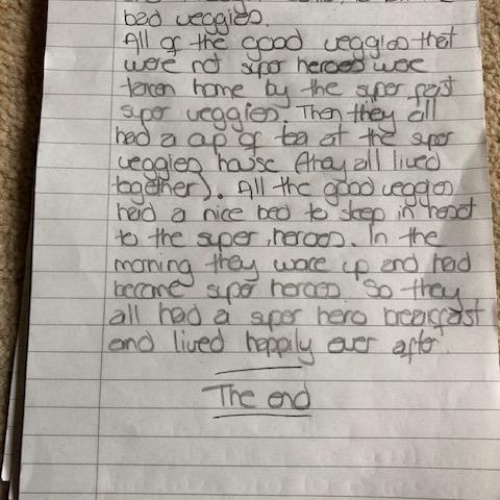 bad veggies.
All of the good veggies that
were not super heroes were
taken home by the super fast
super veggies. Then they all
had a cup of tea at the super
veggies house (they all lived
together). All the good veggies
had a nice bed to sleep in next
to the super heroes. In the
morning they woke up and had
become super heroes. So they
all had a super hero breakfast
and lived happily ever after.
The end